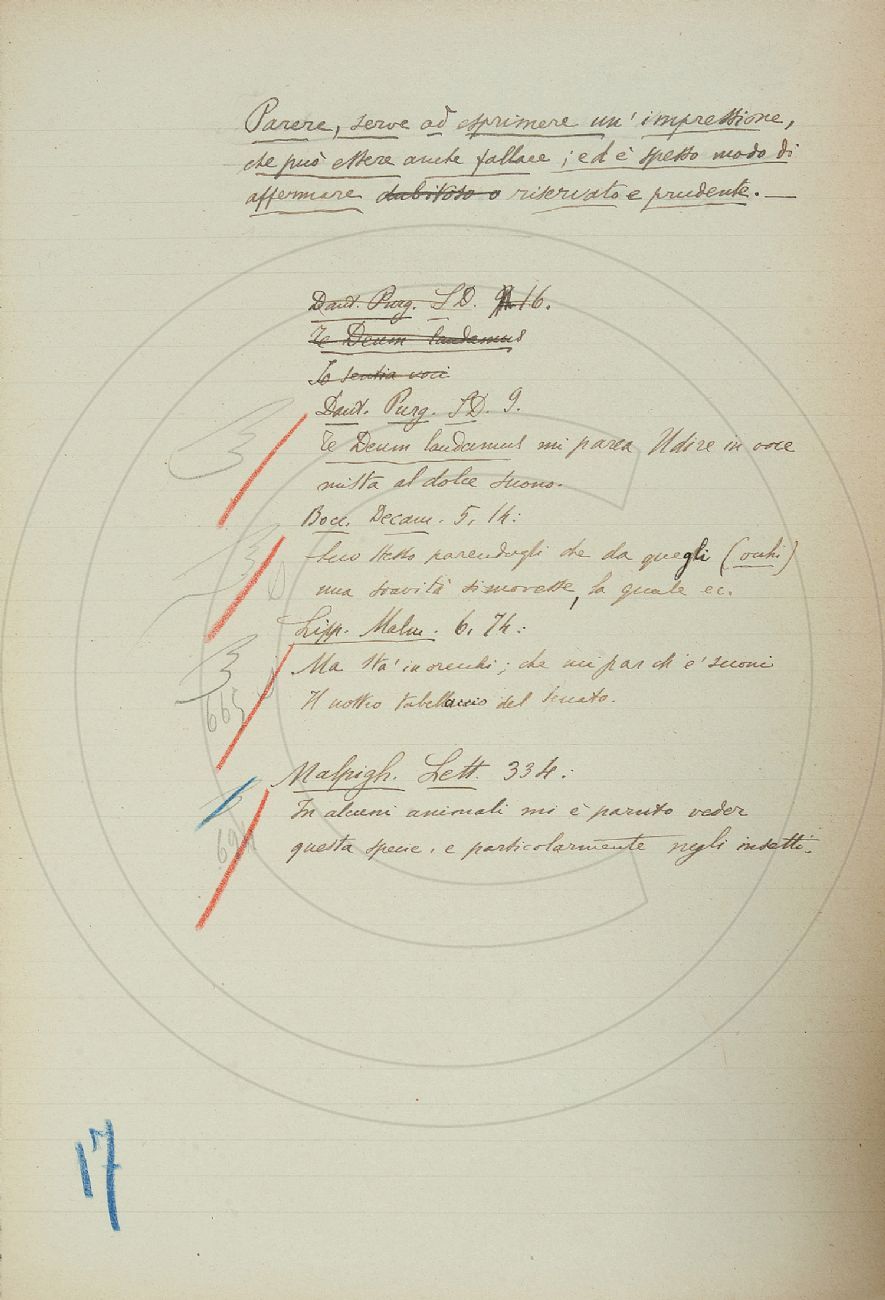 Parere, serve ad esprimere un' impressione,
che può essere anche fallace; ed è spesso modo di
affermare dubitoso o riservato e prudente. —
Dant. Purg. SD. 9 16.
Te Deum laudamus
Io sentia voci
Dant. Purg. SD. 9.
Te Deum laudamus mi parea Udire in voce
mista al dolce suono.
Bocc. Decam. 5, 14:
Seco stesso parendogli che da quegli (occhi)
una soavità si movesse, la quale ec.
Lipp. Malm. 6. 74:
Ma sta' in orecchi; che mi par ch' e' suoni
Il nostro tabellaccio del Senato.
665
Malpigh. Lett. 334:
In alcuni animali mi è paruto veder
questa specie, e particolarmente negli insetti.
17